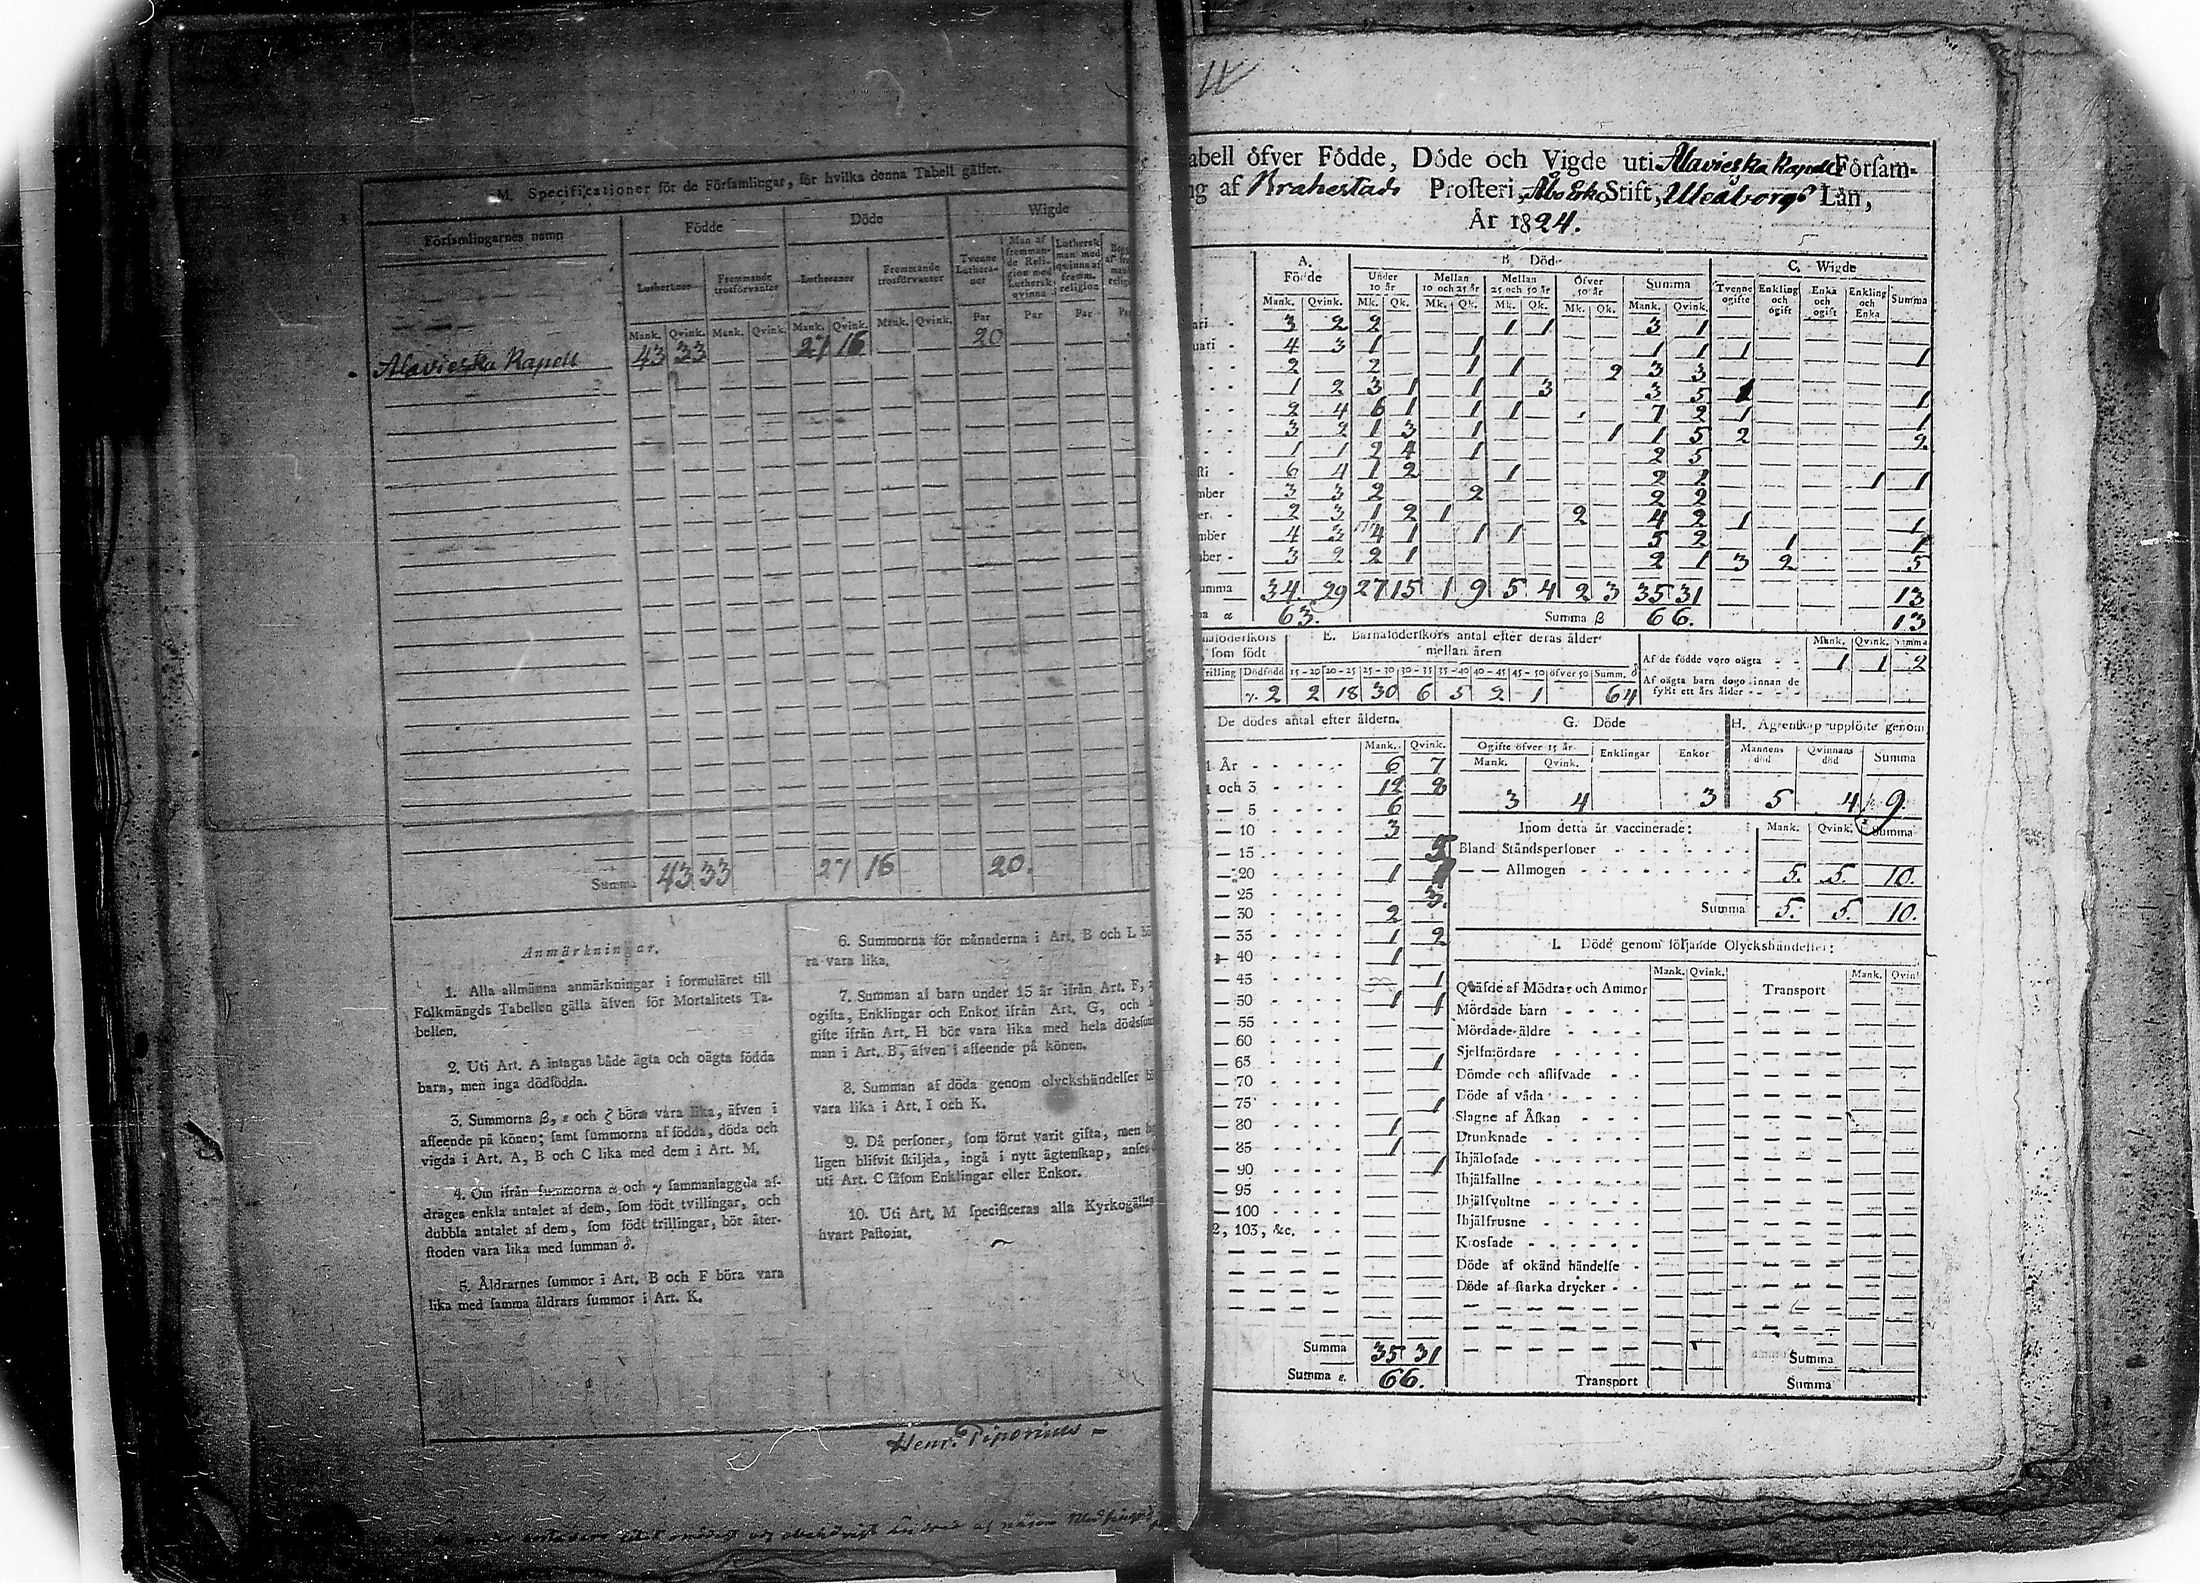 M. Specificationer för de Församlingar, för hvilka denna Tabell gäller.
Församlingarnes namn
Födde
Döde
Wigde
Lutheraner
Fremmande trosförvanter
Lutheraner
Fremmande trosförvanter
Tvenne Lutheraner
Man af fremmande Religion med Luthersk qvinna
Luthersk man med qvinna af fremm. religion
Mank. Qvink. Mank. Qvink. Mank. Qvink. Mank. Qvink. Par Par Par
Alavieska Kapell 43 33 27 16 20
Summa 43 33 27 16 20.
Anmärkningar.
1. Alla allmänna anmärkningar i formuläret till
Folkmängds Tabellen gälla äfven för Mortalitets Ta-
bellen.
2. Uti Art. A intagas både ägta och oägta födda
barn, men inga dödfödda.
3. Summorna β, ε och ζ böra vara lika, äfven i
afseende på könen; samt summorna af födda, döda och
vigda i Art. A, B och C lika med dem i Art. M.
4. Om ifrån summorna α och γ sammanlagda af-
drages enkla antalet af dem, som födt tvillingar, och
dubbla antalet af dem, som födt trillingar, bör åter-
stoden vara lika med summan δ.
5. Åldrarnes summor i Art. B och F böra vara
lika med samma åldrars summor i Art. K.
6. Summorna för månaderna i Art. B och L bö
ra vara lika.
7. Summan af barn under 15 år ifrån Art. F,
ogifta, Enklingar och Enkor ifrån Art. G, och
gifte ifrån Art. H bör vara lika med hela dödssum
man i Art. B, äfven i afseende på könen.
8. Summan af döda genom olyckshändelser bö
vara lika i Art. I och K.
9. Då personer, som förut varit gifta, men
ligen blifvit skiljda, ingå i nytt ägtenskap, anses
uti Art. C såsom Enklingar eller Enkor.
10. Uti Art. M specificeras alla Kyrkogällen
hvart Pastorat.
Henr. Piponius
abell öfver Födde, Döde och Vigde uti Alavieska Kapell Försam-
ng af Brahestads Prosteri, Åbo Erke Stift, Uleåborgs Län,
År 1824.
A. Födde
B. Döde
C. Wigde
Under 10 år
Mellan 10 och 25 år
Mellan 25 och 50 år
Öfver 50 år
Summa
Tvenne ogifte
Enkling och ogift
Enka och ogift
Enkling och Enka
Summa
Mank. Qvink. Mk. Qk. Mk. Qk. Mk. Qk. Mk. Qk. Mank. Qvink.
ari 3 2 2 1 1 3 1
uari 4 3 1 1 1 1 1 1
2 2 1 1 2 3 3
1 2 3 1 1 3 3 5 1 1
2 4 6 1 1 1 7 2 1 1
3 2 1 3 1 1 1 5 2 2
1 1 2 4 1 2 5
sti 6 4 1 2 1 2 2 1 1
mber 3 3 2 2 2 2
er. 2 3 1 2 1 2 4 2 1 1
mber 4 3 4 1 1 1 5 2 1 1
mber 3 2 2 1 2 1 3 2 5
umma 34 29 27 15 1 9 5 4 2 3 35 31 13
ma α 63. Summa β 66. 13
naföderskors
som födt
E. Barnaföderskors antal efter deras ålder
mellan åren
rilling Dödfödd 15-20 20-25 25-30 30-35 35-40 40-45 45-50 öfver 50 Summ. δ
γ. 2 2 18 30 6 5 2 1 64
Mank. Qvink. Summa
Af de födde voro oägta 1 1 2
Af oägta barn dogo innan de
fyllt ett års ålder
De dödes antal efter åldern.
Mank. Qvink.
1 År 6 7
1 och 3 12 8
— 5 6
— 10 3
— 15 5
— 20 1
— 25 3.
— 30 2
— 35 1 2
— 40 1
— 45 1
— 50 1 1
— 55
— 60
— 65 1
— 70
— 75 1
— 80 1
— 85 1
— 90 1
— 95
— 100
2, 103, &c.
Summa 35 31
Summa ε. 66.
G. Döde
Ogifte öfver 15 år
Enklingar
Enkor
Mank. Qvink.
3 4 3
H. Ägtenskap upplöste genom
Mannens död
Qvinnans död
Summa
5 4 9.
Inom detta år vaccinerade: Mank. Qvink. Summa
Bland Ståndspersoner
— — Allmogen 5. 5. 10.
Summa 5. 5. 10.
I. Döde genom följande Olyckshändelser:
Mank. Qvink. Mank. Qvink
Qväfde af Mödrar och Ammor Transport
Mördade barn
Mördade äldre
Sjelfmördare
Dömde och aflifvade
Döde af våda
Slagne af Åskan
Drunknade
Ihjälosade
Ihjälfallne
Ihjälsvultne
Ihjälfrusne
Krossade
Döde af okänd händelse
Döde af starka drycker
Summa
Transport Summa